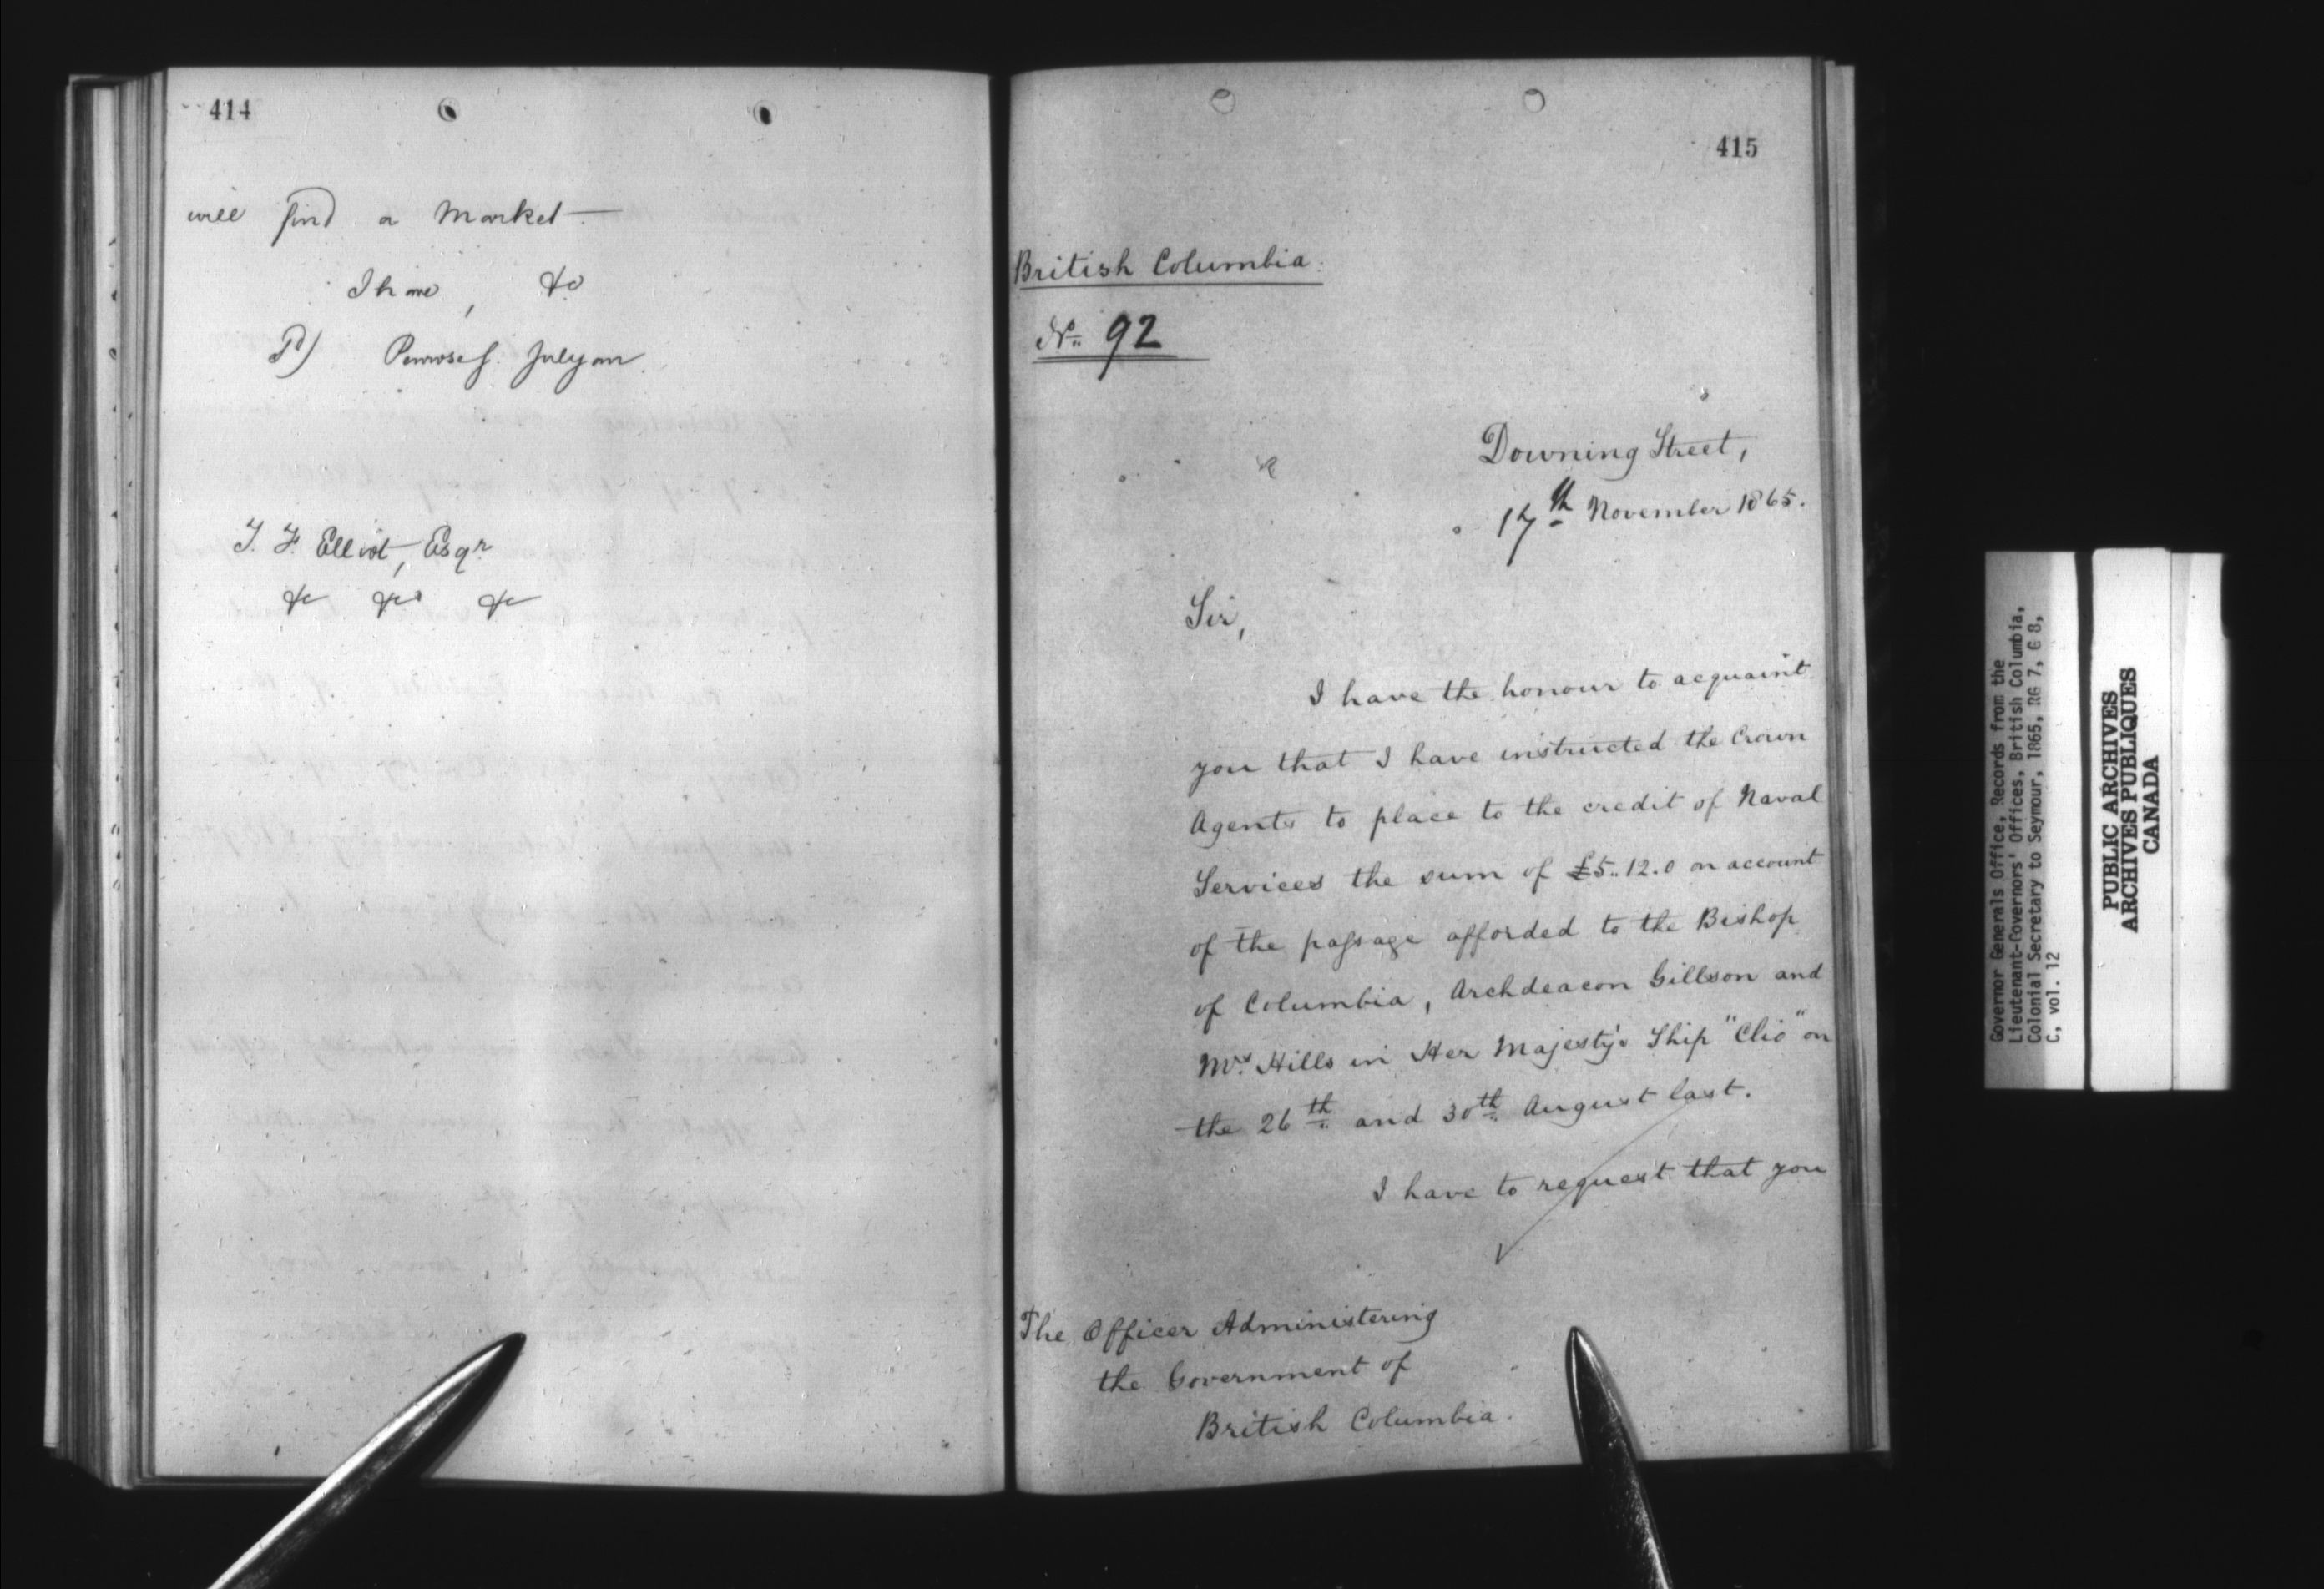 414
will find a Market —
I have, &c
Sd) Penrose G. Julyan.
T. F. Elliot, Esqr
&c &c &c
415
British Columbia.
No. 92
Downing Street,
17th November 1865.
Sir,
I have the honour to acquaint
you that I have instructed the Crown
Agents to place to the credit of Naval
Services the sum of £5..12.0 on account
of the passage afforded to the Bishop
of Columbia, Archdeacon Gillson and
Mrs. Hills in Her Majesty's Ship "Clio" on
the 26th and 30th August last.
I have to request that you
The Officer Administering
the Government of
British Columbia.
Governor Generals Office, Records from the
Lieutenant-Governors' Offices, British Columbia,
Colonial Secretary to Seymour, 1865, RG 7, G 8,
C, vol. 12
PUBLIC ARCHIVES
ARCHIVES PUBLIQUES
CANADA